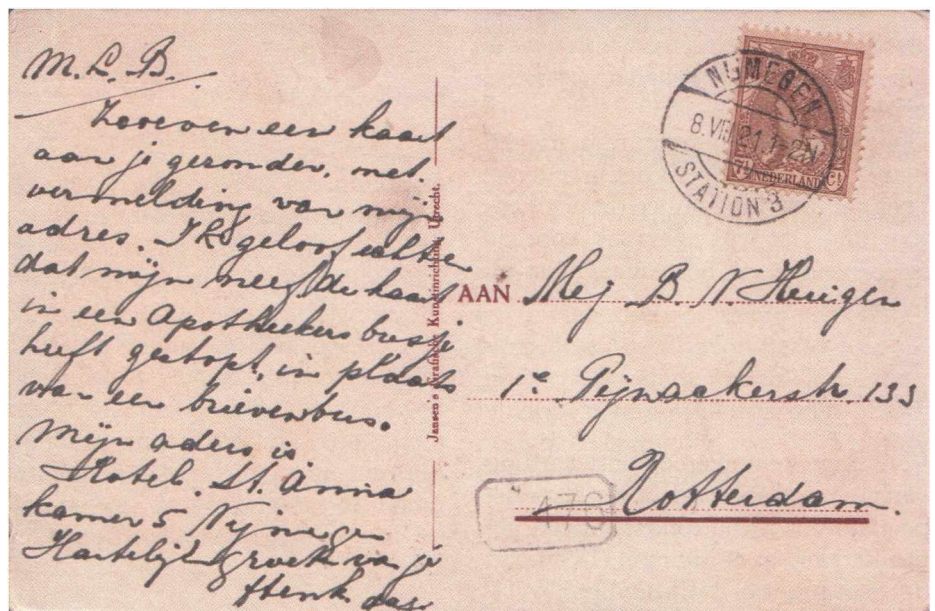 M. L. B.
Zooeven een kaart
aan je gezonden, met
vermelding van mijn
adres. Ik geloof echter
dat mijn neef de kaart
in een Apothekers busje
heeft gestopt, in plaats
van een brievenbus.
Mijn adres is
Hotel. St. Anna
kamer 5 Nijmegen
Hartelijk groeten van je
Henk
Jansen's Grafische Kunstinrichting, Utrecht.
NIJMEGEN
8.VIII.21. 1-2N
STATION 3
7½ NEDERLAND Ct
AAN Mej B. V. Heiigen
1e Pijnackerstr. 133
Rotterdam.
176